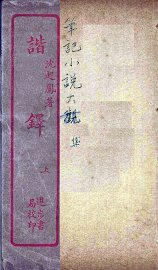 筆記小說大觀
諧鐸
沈起鳳著
上
進步書
局校印